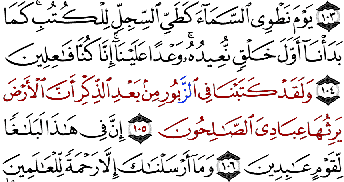 ١٠٣ يَوْمَ نَطْوِى ٱلسَّمَآءَ كَطَىِّ ٱلسِّجِلِّ لِلْكُتُبِ ۚ كَمَا
بَدَأْنَآ أَوَّلَ خَلْقٍ نُّعِيدُهُۥ ۚ وَعْدًا عَلَيْنَآ ۚ إِنَّا كُنَّا فَٰعِلِينَ
١٠٤ وَلَقَدْ كَتَبْنَا فِى ٱلزَّبُورِ مِنۢ بَعْدِ ٱلذِّكْرِ أَنَّ ٱلْأَرْضَ
يَرِثُهَا عِبَادِىَ ٱلصَّٰلِحُونَ ١٠٥ إِنَّ فِى هَٰذَا لَبَلَٰغًا
لِّقَوْمٍ عَٰبِدِينَ ١٠٦ وَمَآ أَرْسَلْنَٰكَ إِلَّا رَحْمَةً لِّلْعَٰلَمِينَ